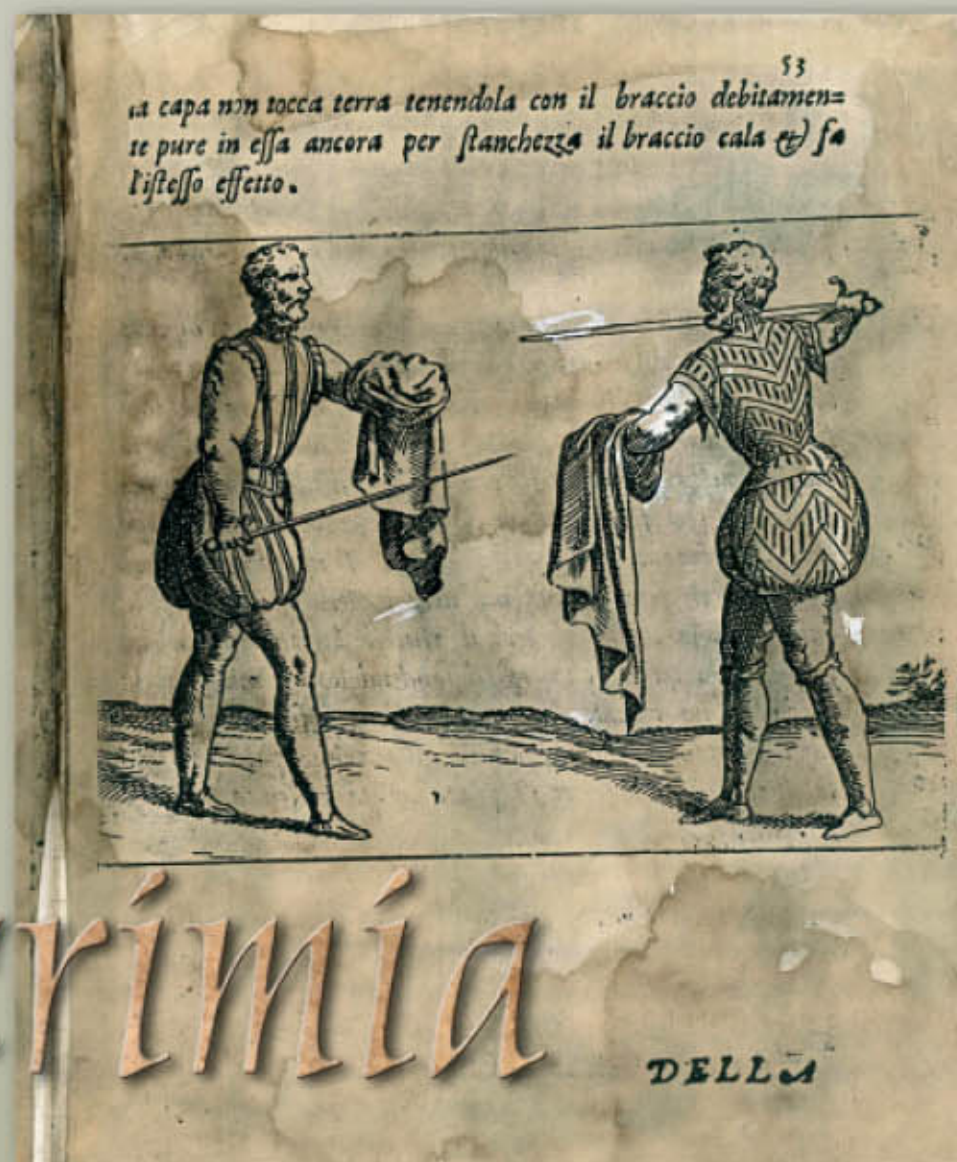 53
la capa non tocca terra tenendola con il braccio debitamen=
te pure in eſſa ancora per ſtanchezza il braccio cala & fa
l'iſteſſo effetto.
rimia
DELLA